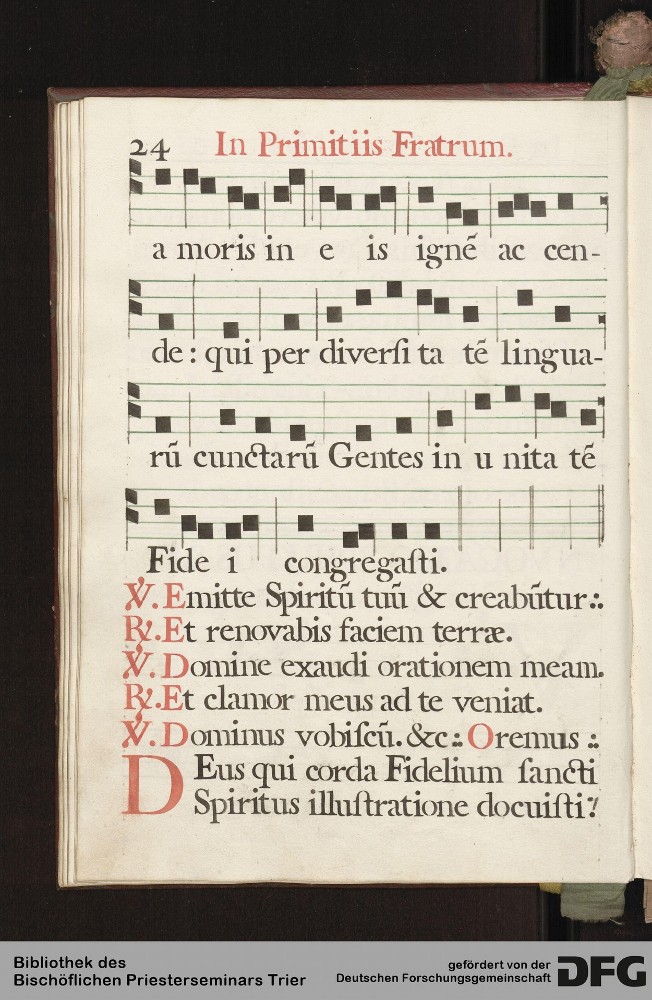 24 In Primitiis Fratrum.
a moris in e is ignẽ ac cen-
de: qui per diverſi ta tẽ lingua-
rũ cunctarũ Gentes in u nita tẽ
Fide i congregaſti.
℣. Emitte Spiritũ tuũ & creabũtur:.
℟. Et renovabis faciem terræ.
℣. Domine exaudi orationem meam.
℟. Et clamor meus ad te veniat.
℣. Dominus vobiſcũ. &c:. Oremus:.
DEus qui corda Fidelium ſancti
Spiritus illuſtratione docuiſti:
Bibliothek des
Bischöflichen Priesterseminars Trier
gefördert von der
Deutschen Forschungsgemeinschaft
DFG